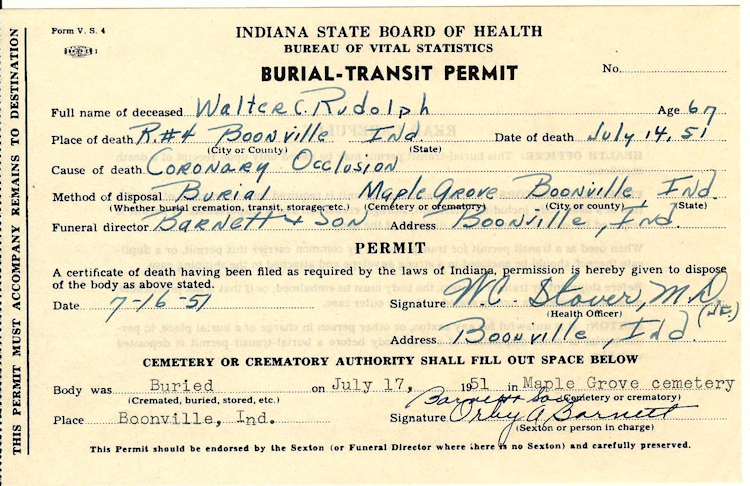 Form V. S. 4
INDIANA STATE BOARD OF HEALTH
BUREAU OF VITAL STATISTICS
BURIAL-TRANSIT PERMIT
No.
Full name of deceased Walter C. Rudolph Age 67
Place of death R.#4 Boonville Ind Date of death July 14, 51
(City or County) (State)
Cause of death Coronary Occlusion
Method of disposal Burial Maple Grove Boonville Ind.
(Whether burial cremation, transit, storage, etc.) (Cemetery or crematory) (City or county) (State)
Funeral director Barnett & Son Address Boonville, Ind.
PERMIT
A certificate of death having been filed as required by the laws of Indiana, permission is hereby given to dispose
of the body as above stated.
Date 7-16-51 Signature W.C. Stover, M.D.
(Health Officer)
Address Boonville, Ind.
CEMETERY OR CREMATORY AUTHORITY SHALL FILL OUT SPACE BELOW
Body was Buried on July 17, 1951 in Maple Grove cemetery
(Cremated, buried, stored, etc.) (Cemetery or crematory)
Barnett & Son
Place Boonville, Ind. Signature Orby A Barnett
(Sexton or person in charge)
This Permit should be endorsed by the Sexton (or Funeral Director where there is no Sexton) and carefully preserved.
THIS PERMIT MUST ACCOMPANY REMAINS TO DESTINATION